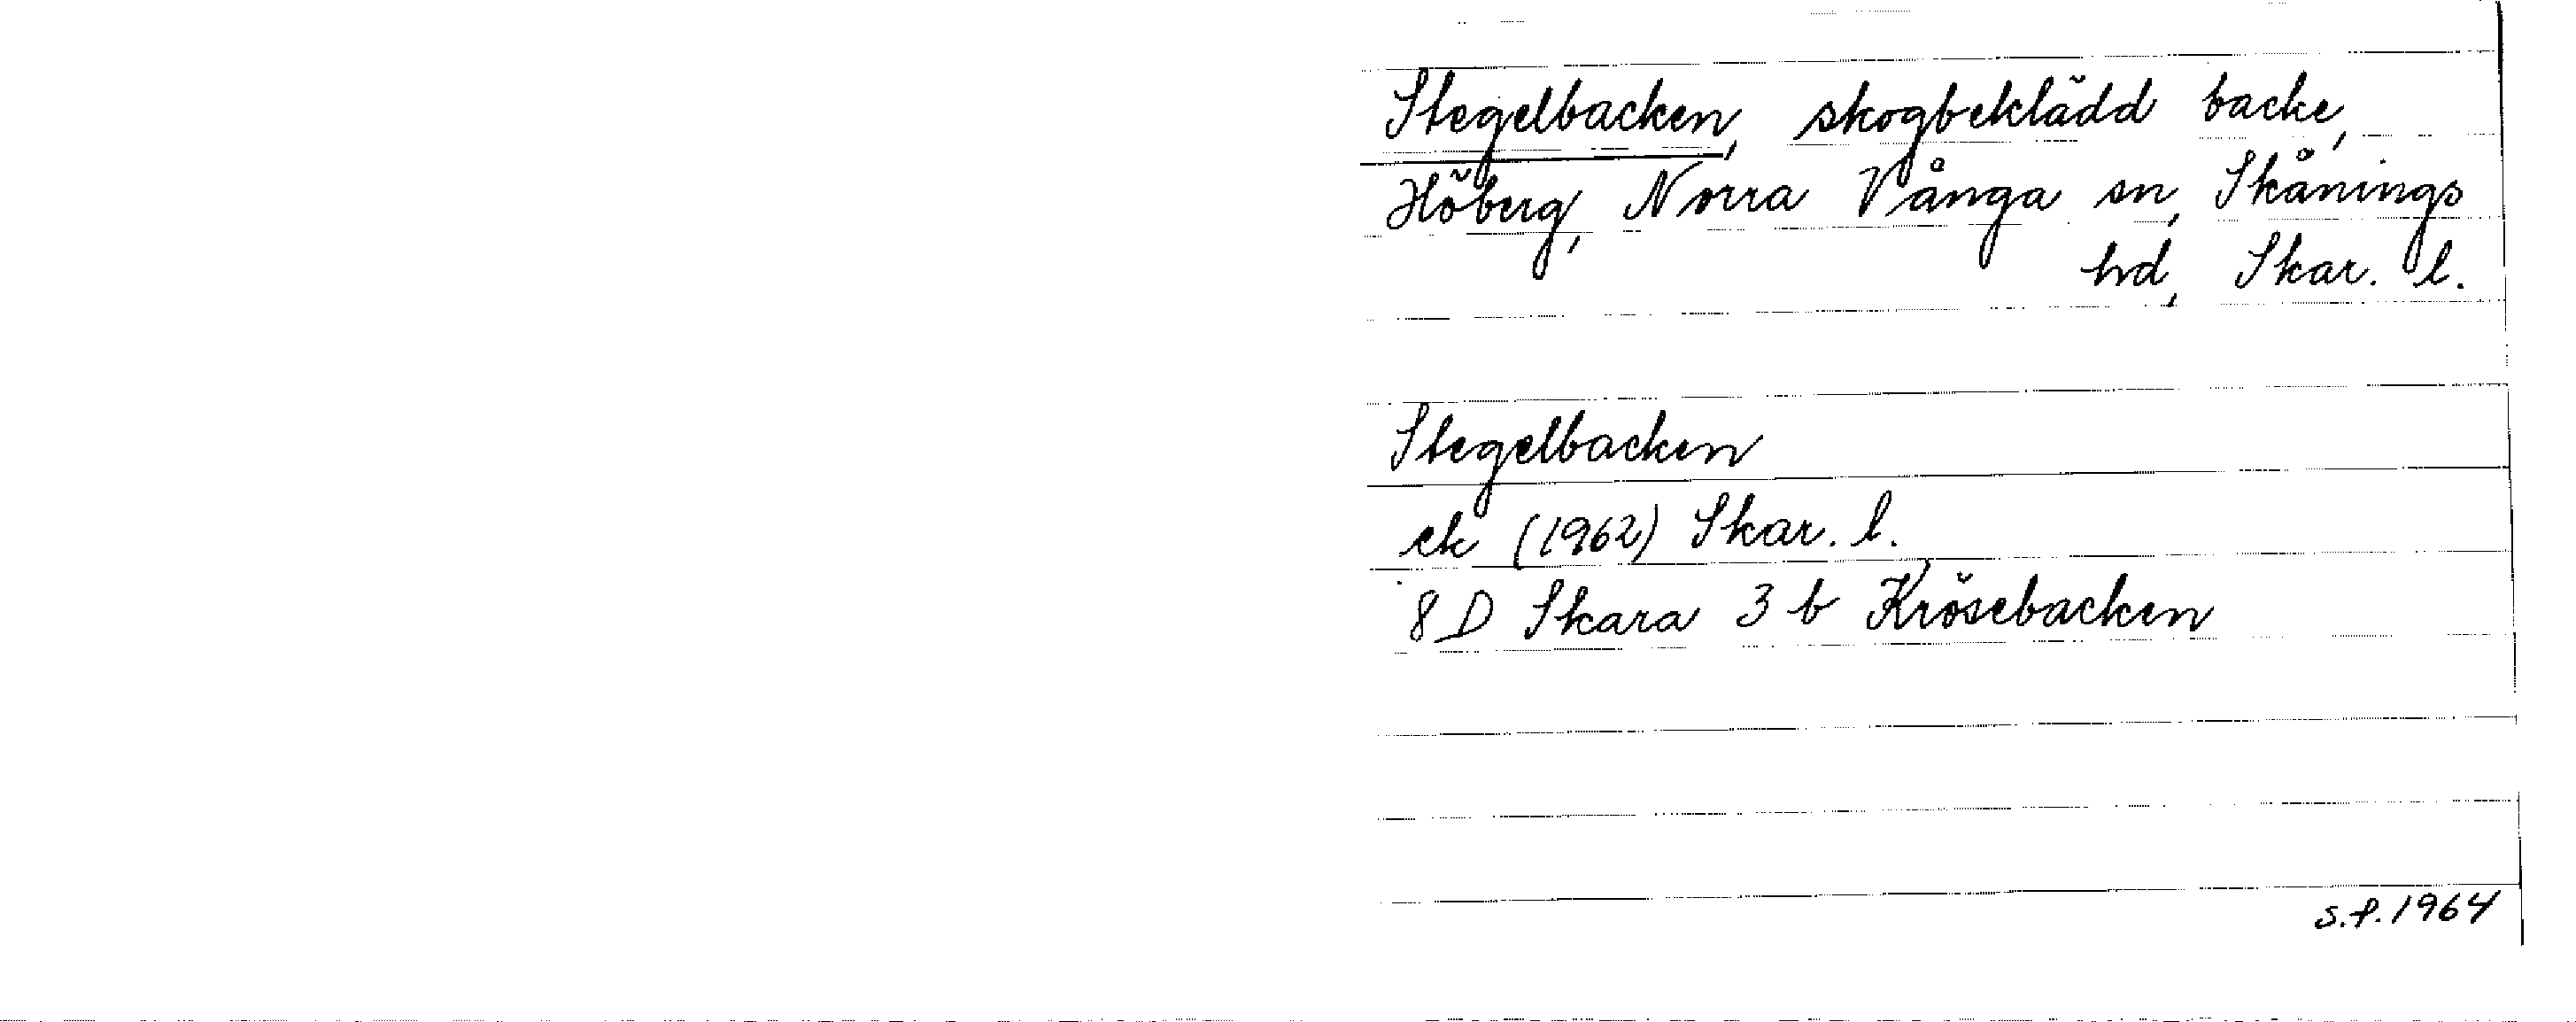 Stegelbacken, skogbeklädd backe,
Höberg, Norra Vånga sn, Skånings
hd, Skar. l.
Stegelbacken
ek (1962) Skar. l.
8 D Skara 3 b Krösebacken
s.f. 1964